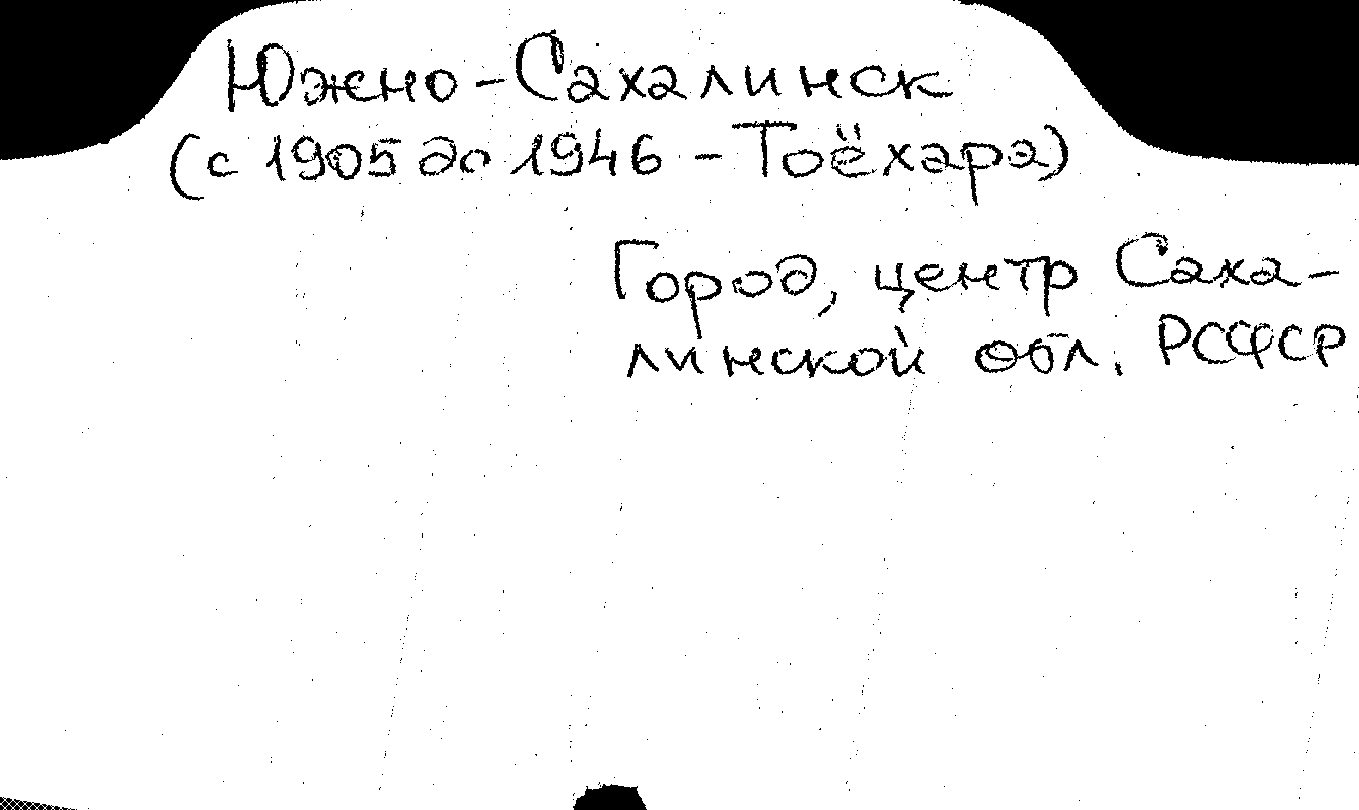 Южно-Сахалинск
(с 1905 до 1946 - Тоёхара)
Город, центр Саха-
линской обл. РСФСР